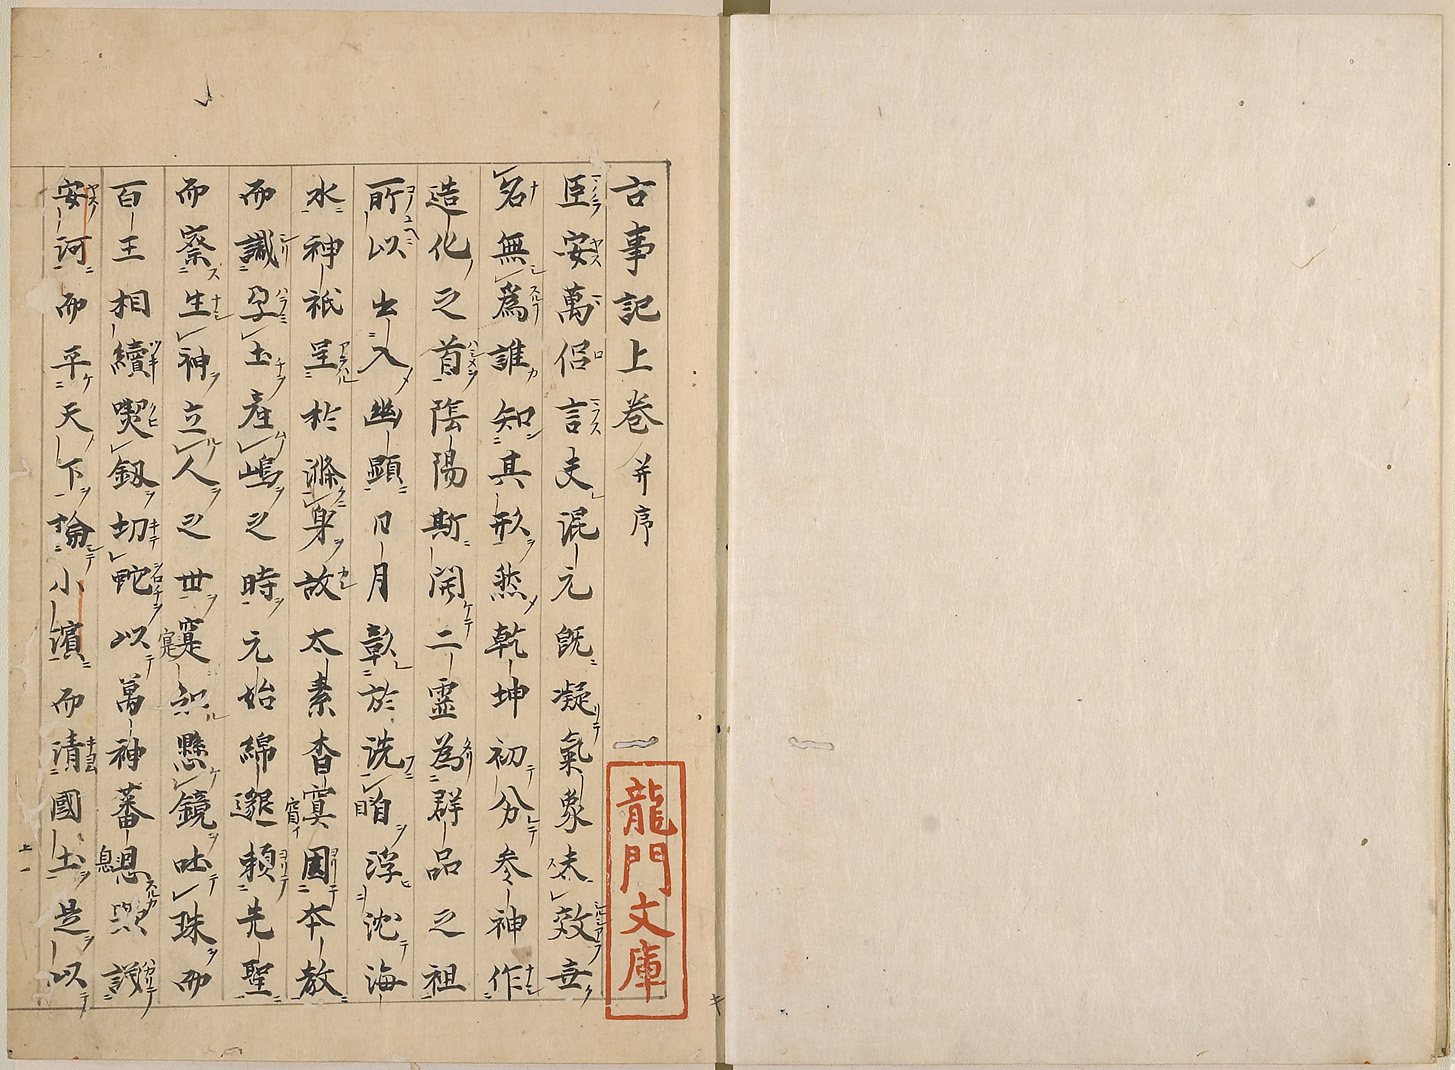 古事記上卷 并序
臣安萬侶言夫混元既凝氣象未效無
名無爲誰知其形然乾坤初分參神作
造化之首陰陽斯開二靈為群品之祖
所以出入幽顯日月彰於洗目浮沈海
水神祇呈於滌身故太素杳冥因本教
而識孕土產嶋之時元始綿邈賴先聖
而察生神立人之世寔知懸鏡吐珠而
百王相續喫釼切蛇以萬神蕃息歟議
安河而平天下論小濱而清國土是以
上一
龍門文庫